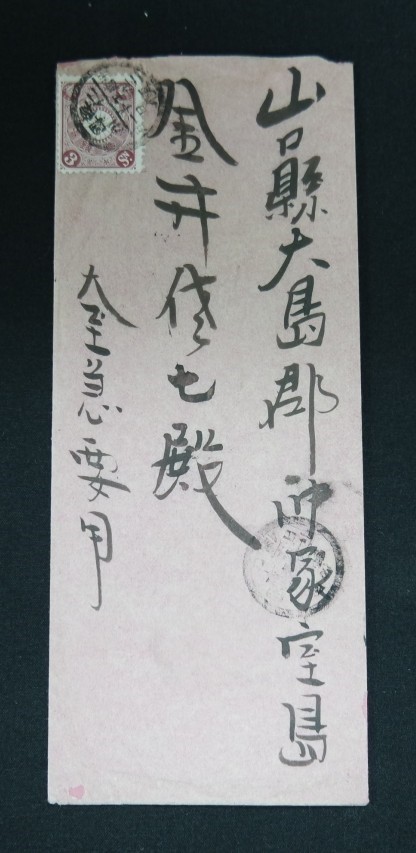 山口縣大島郡沖家室島
金井傳七殿
大至急要用
3